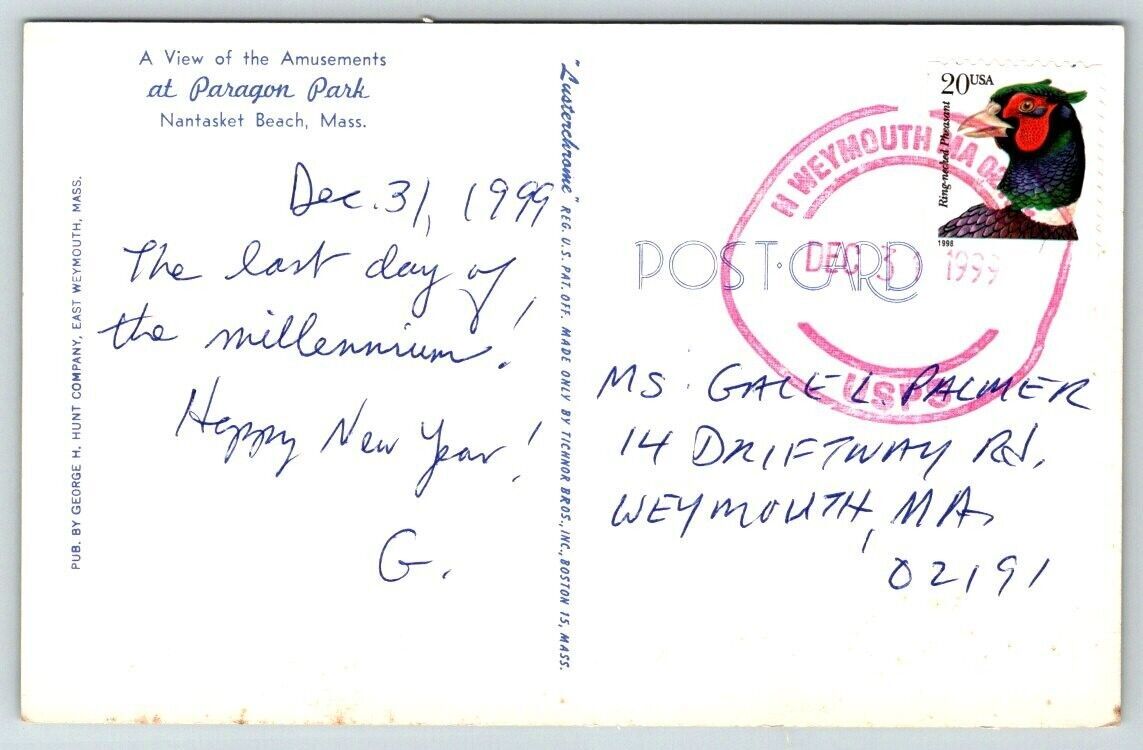 A View of the Amusements
at Paragon Park
Nantasket Beach, Mass.
Dec. 31, 1999
The last day of
the millennium!
Happy New Year!
G.
PUB. BY GEORGE H. HUNT COMPANY, EAST WEYMOUTH, MASS.
"Lusterchrome" REG. U.S. PAT. OFF. MADE ONLY BY TICHNOR BROS., INC., BOSTON 15, MASS.
20USA
Ring-necked Pheasant
1998
N WEYMOUTH MA
DEC 31 1999
USPS
POST·CARD
MS. GALE L. PALMER
14 DRIFTWAY Rd.
WEYMOUTH, MA.
02191